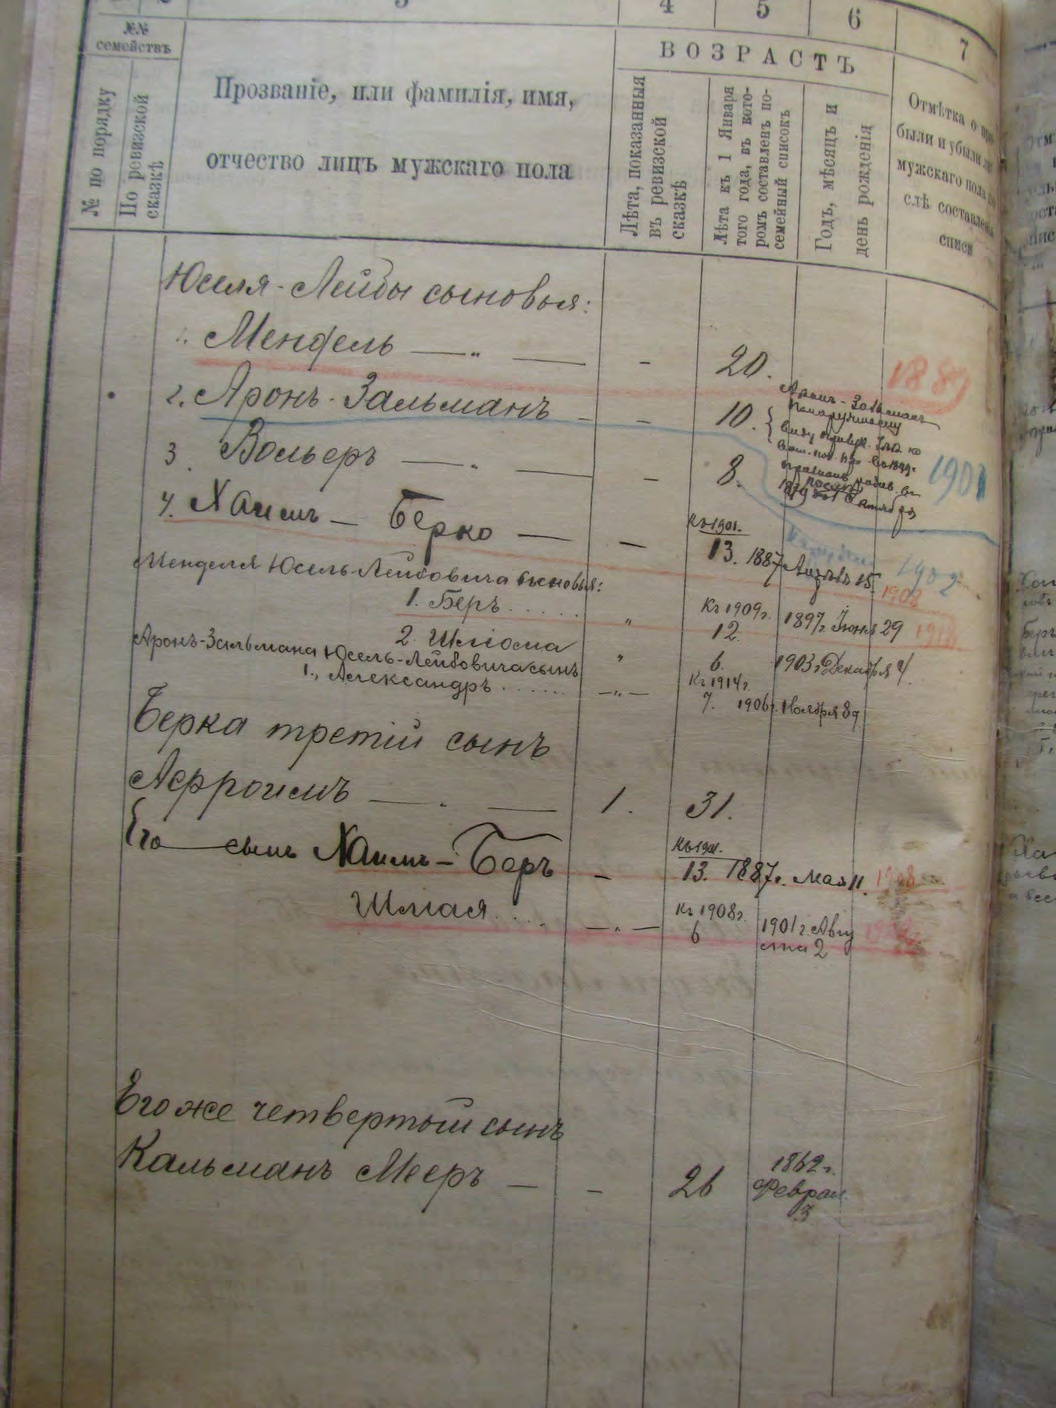 3 4 5 6 7
№№ семействъ
№ по порядку
По ревизской сказкѣ
Прозваніе, или фамилія, имя,
отчество лицъ мужскаго пола
ВОЗРАСТЪ
Лѣта, показанныя въ ревизской сказкѣ
Лѣта къ 1 Января того года, въ которомъ составленъ посемейный списокъ
Годъ, мѣсяцъ и день рожденія
Отмѣтка о
были и убыли
мужскаго пола
слѣ составленія
списк
Юселя-Лейбы сыновья:
Мендель — „ — - 20. 1889
2. Аронъ-Зальманъ - - 10. 1901
Аронъ-Зальманъ
3. Вольеръ — „ — - 8.
4. Хаимъ-Берко — - Къ 1901. 13. 1887 15. 1902 1908
Менделя Юсель-Лейбовича сыновья:
1. Беръ..... „ Къ 1909г. 12. 1897г. Іюня 29
2. Шліома „ 6. 1903г. Декабря 4.
Аронъ-Зальмана Юсель-Лейбовича сынъ
1., Александръ...... —„— Къ 1914г. 7. 1906г. Ноября 8д
Берка третій сынъ
Аерроимъ — „ — 1. 31.
Его сынъ Хаимъ-Беръ - Къ 1901. 13. 1887г. Мая 11. 1908
Шмая... —„— Къ 1908г. 6 1901г. Авгу
ста 2
Его же четвертый сынъ
Кальманъ Мееръ — - 26 1862г.
Феврал.
3